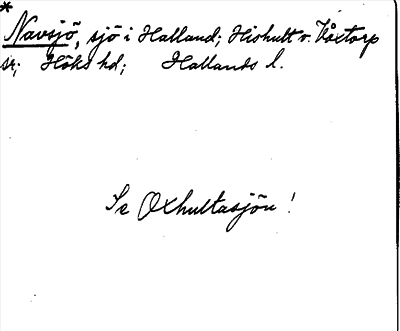 *
Navsjö, sjö i Halland; Hishult o. Våxtorp
sr; Höks hd; Hallands l.
Se Oxhultasjön!